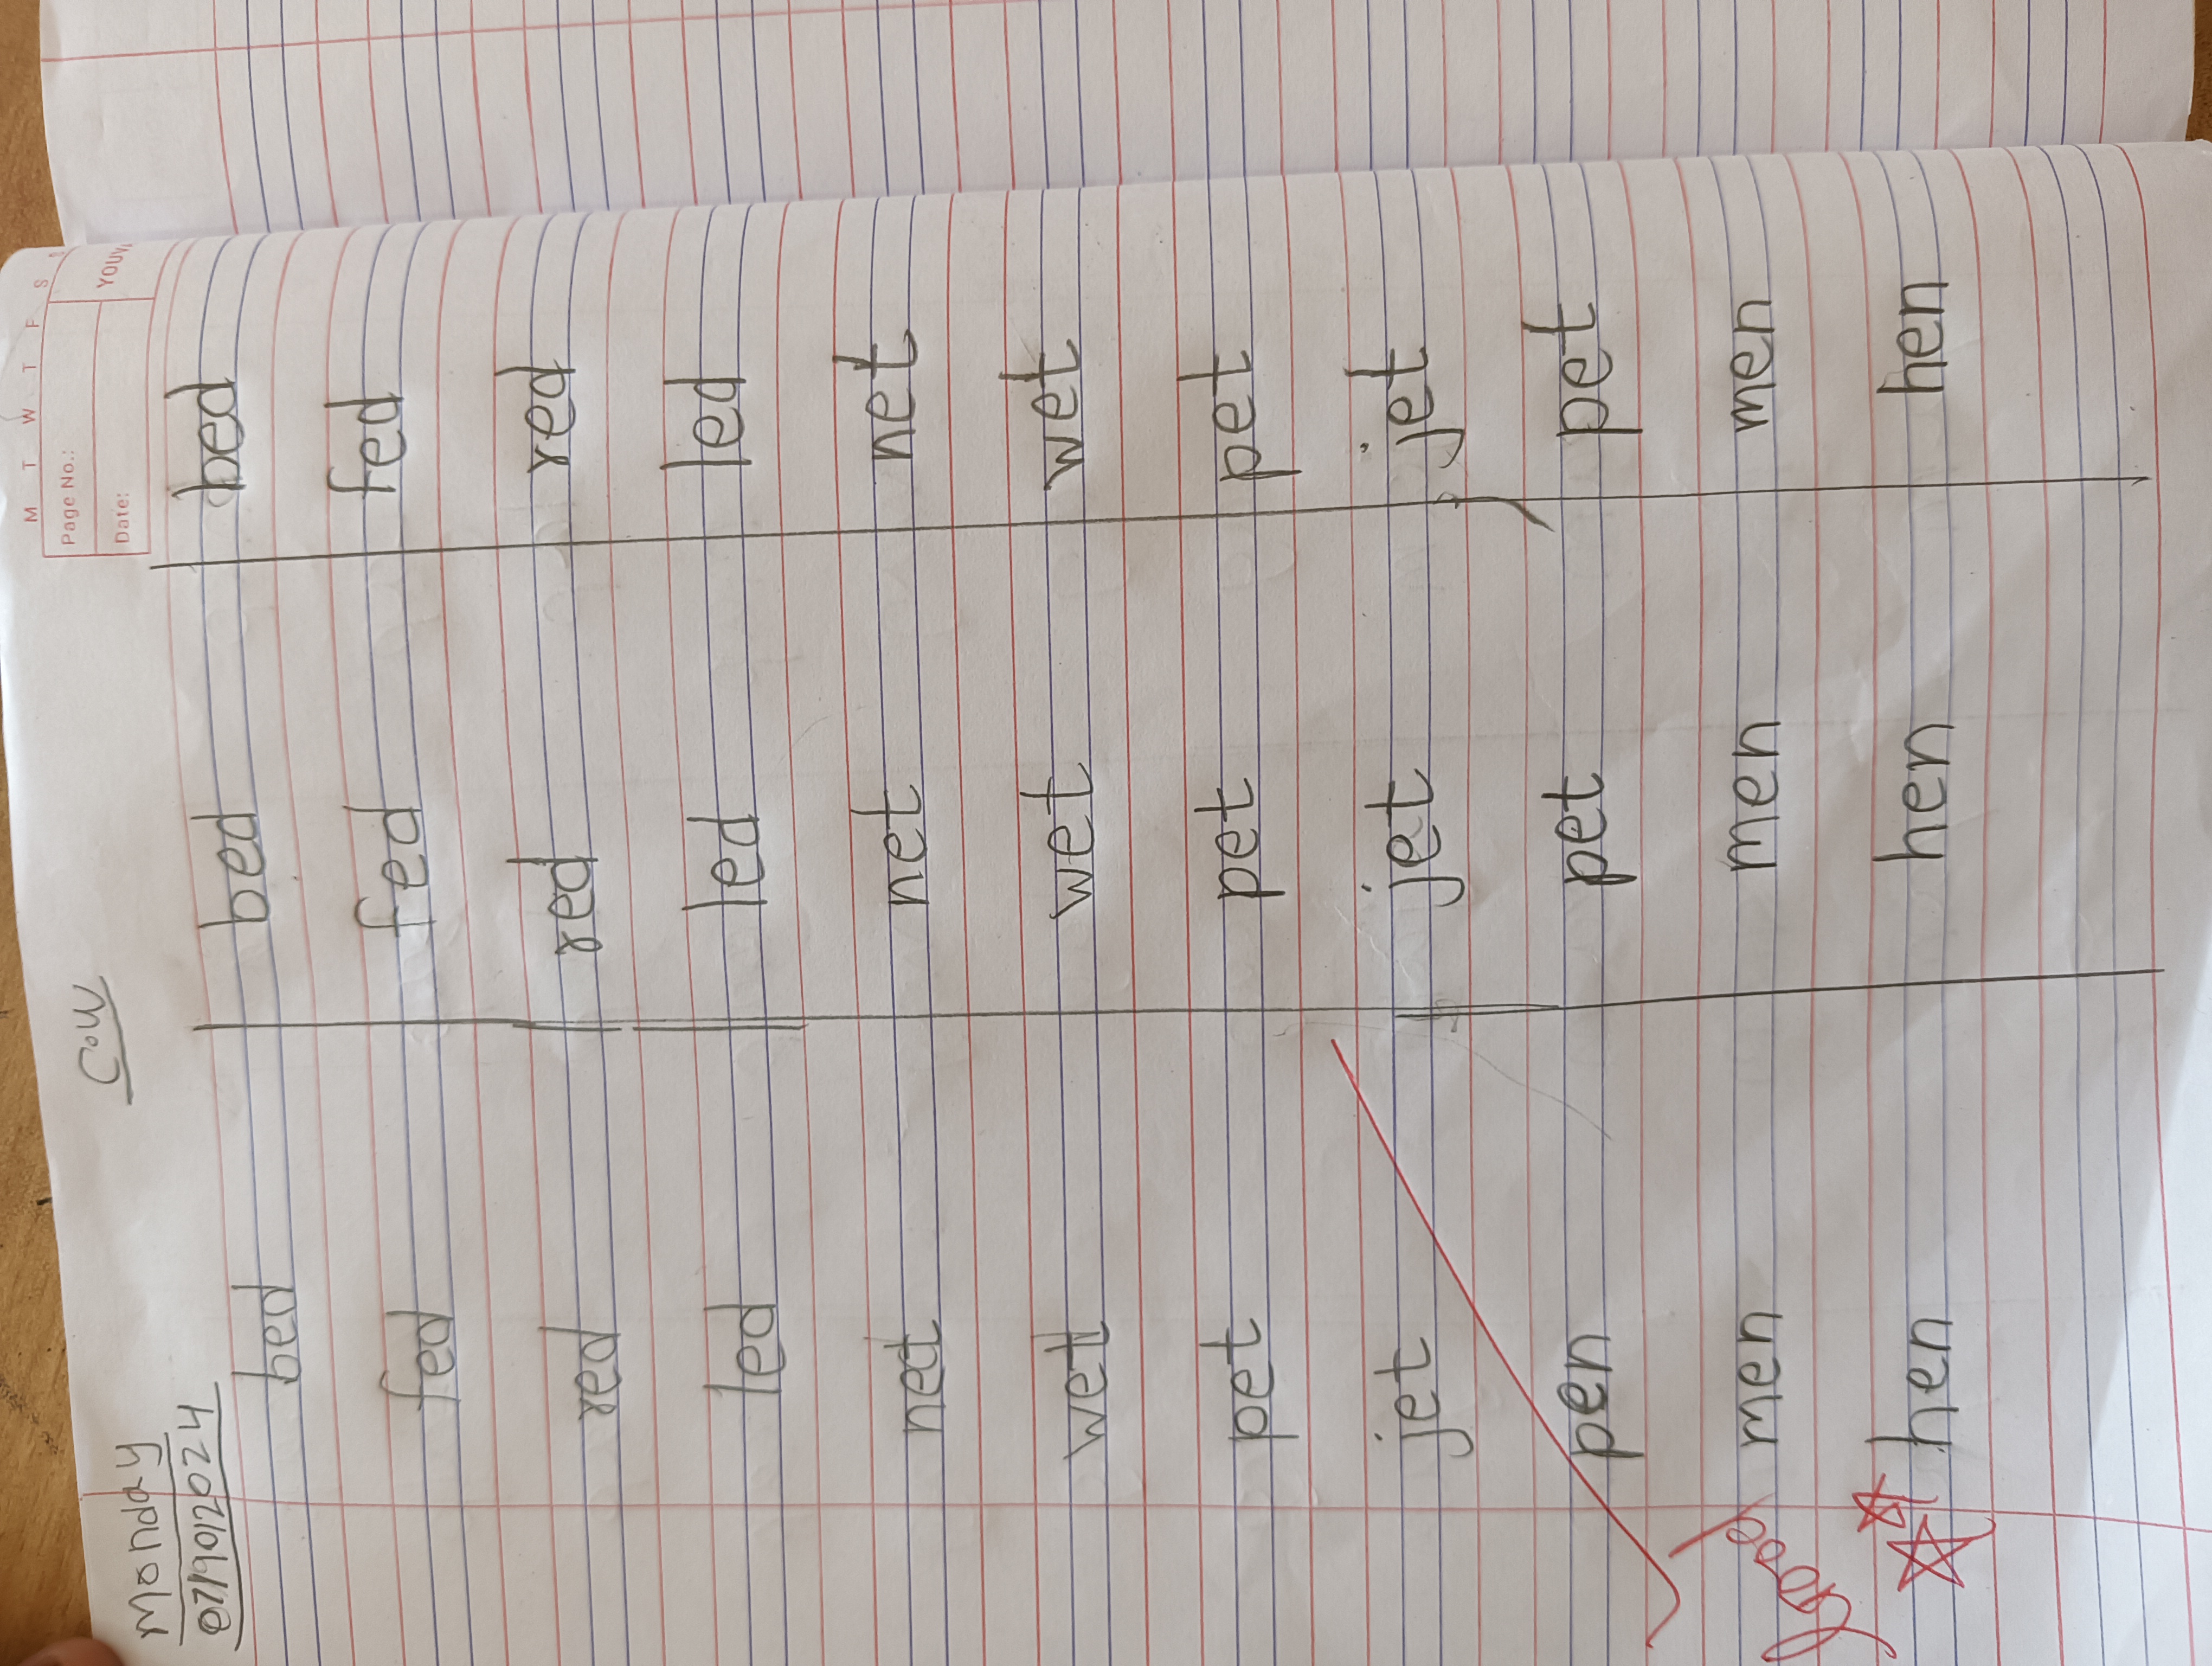 M T W T F S
Page No.:
Date:
YOUVA
Monday
C.W
bed bed bed
fed fed fed
red red red
led led led
net net net
wet wet wet
pet pet pet
jet jet jet
pen pet pet
men men men
hen hen hen
Good